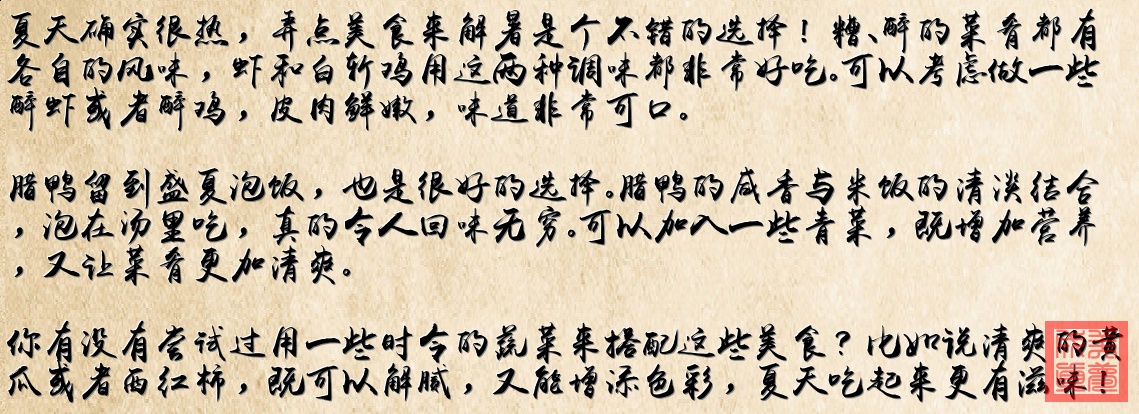 夏天确实很热，弄点美食来解暑是个不错的选择！糟、醉的菜肴都有
各自的风味，虾和白斩鸡用这两种调味都非常好吃。可以考虑做一些
醉虾或者醉鸡，皮肉鲜嫩，味道非常可口。
腊鸭留到盛夏泡饭，也是很好的选择。腊鸭的咸香与米饭的清淡结合
，泡在汤里吃，真的令人回味无穷。可以加入一些青菜，既增加营养
，又让菜肴更加清爽。
你有没有尝试过用一些时令的蔬菜来搭配这些美食？比如说清爽的黄
瓜或者西红柿，既可以解腻，又能增添色彩，夏天吃起来更有滋味！